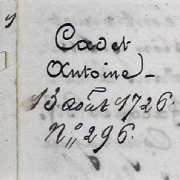 Cadet
Antoine –
13 août 1726.
N° 296.